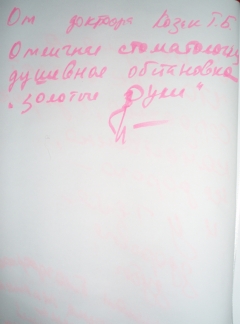 От доктора Козак Т.Б
Отличная стоматология
душевная обстановка
"Золотые Руки"